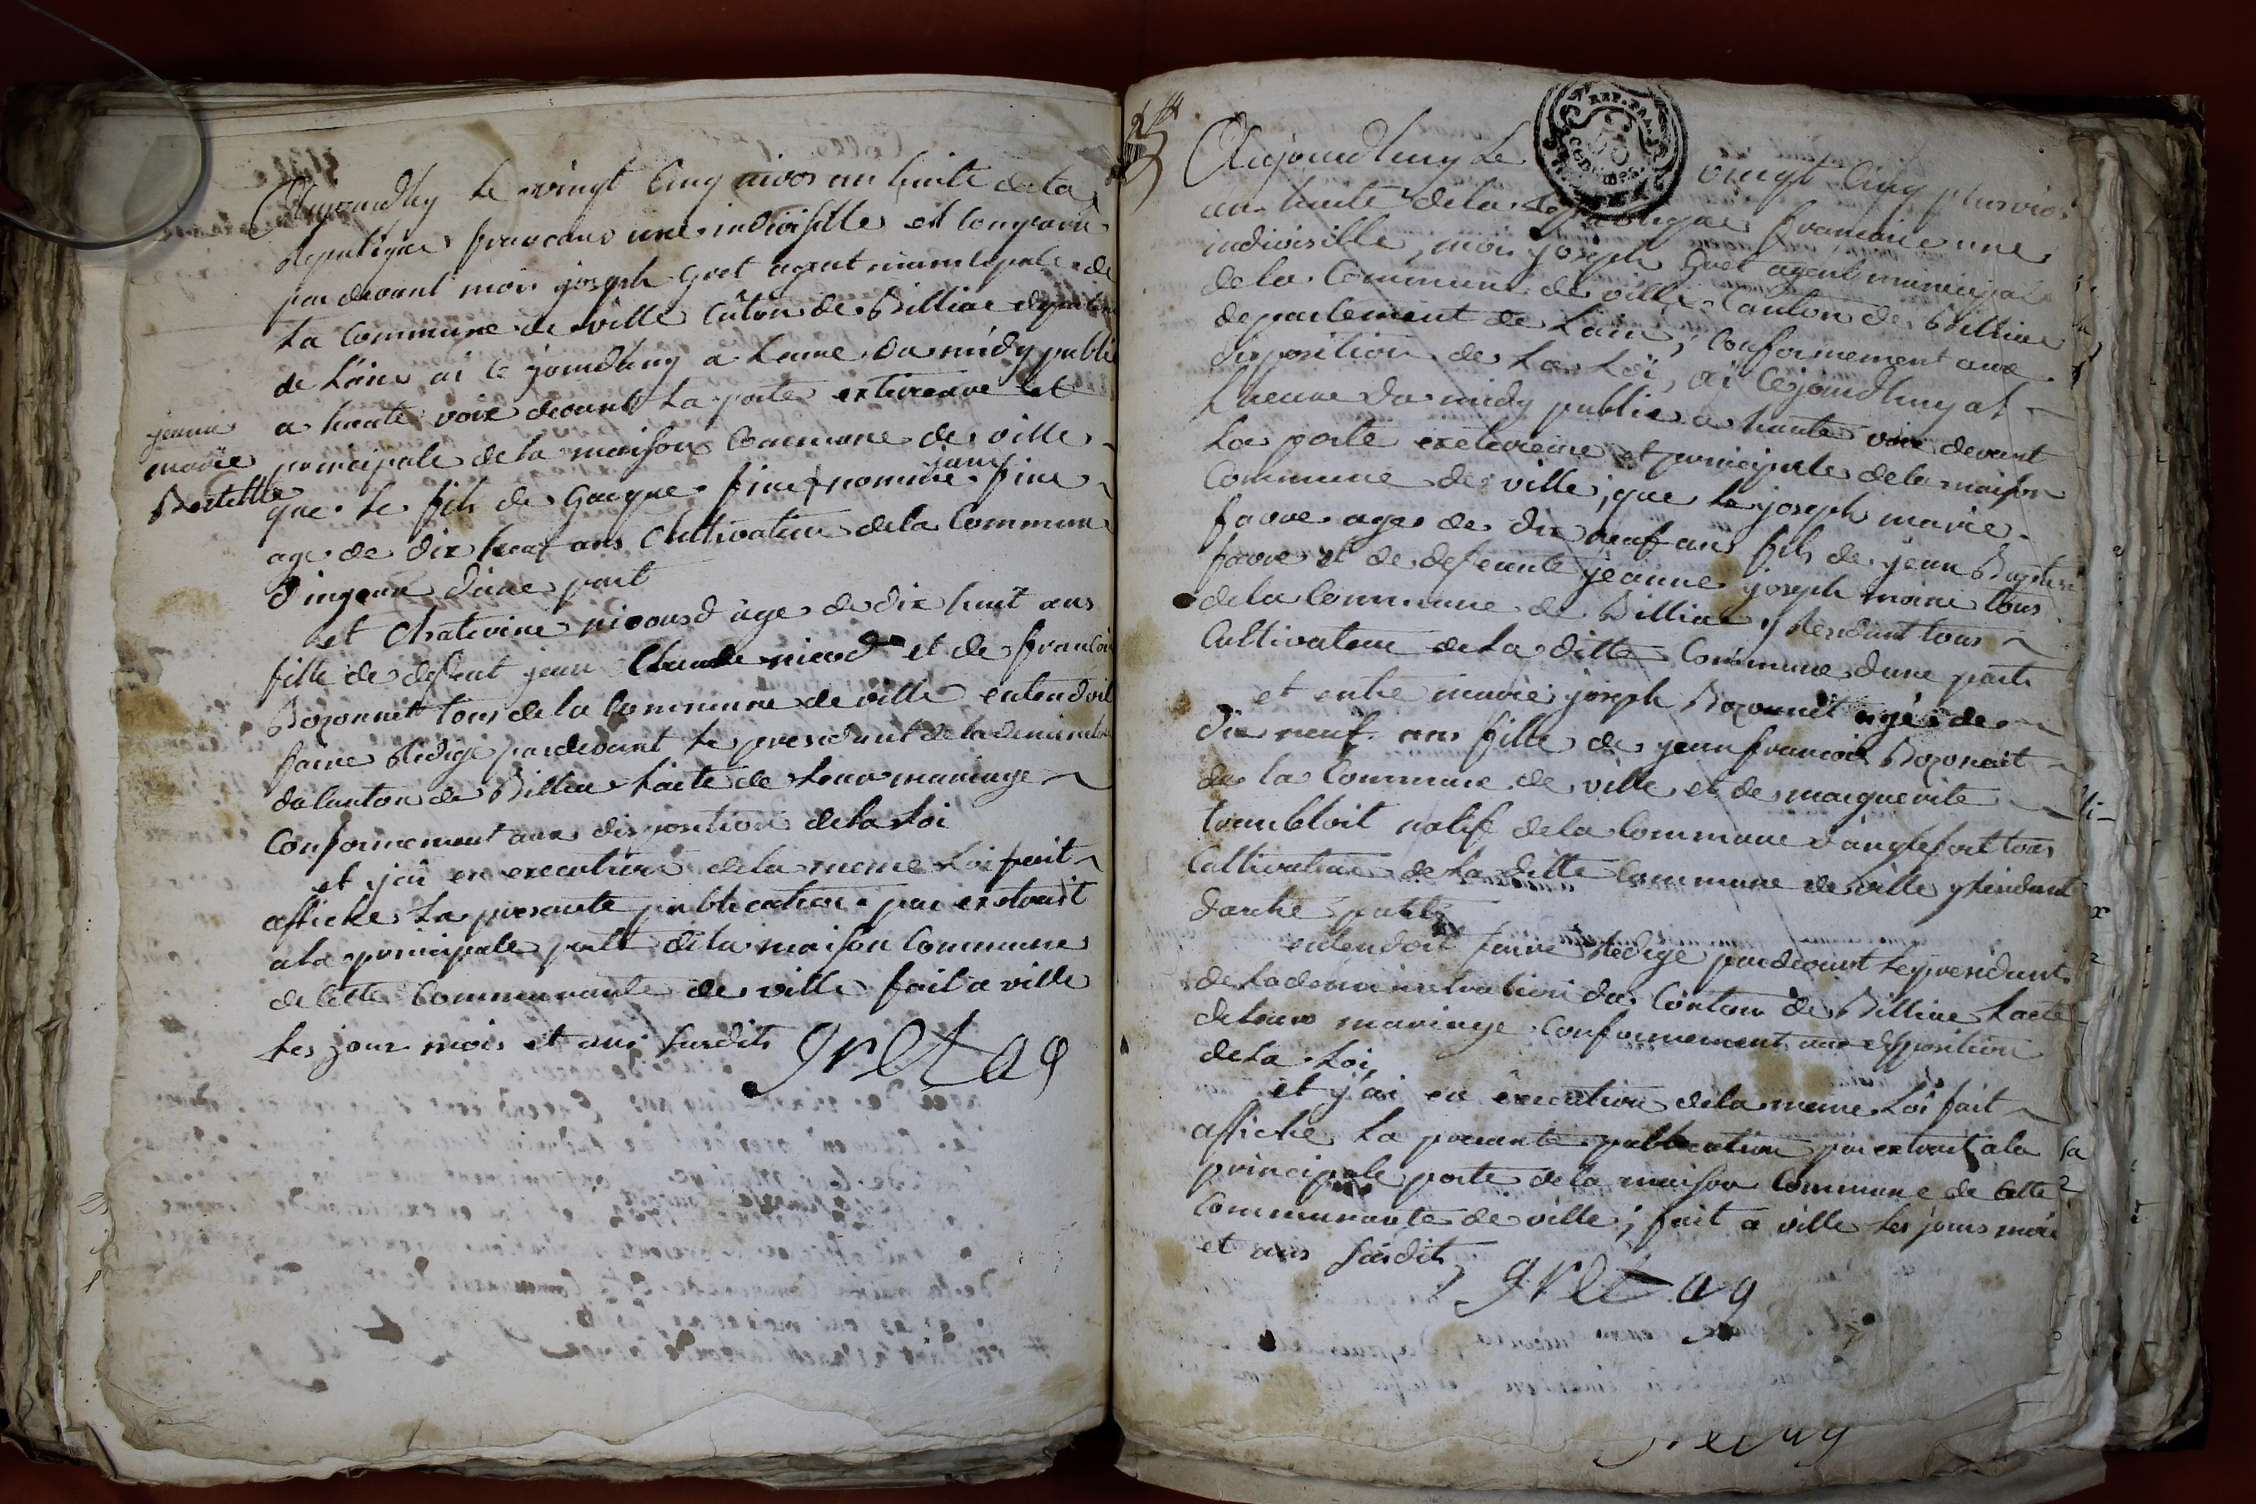 Aujourdhuy le vingt Cinq nivos an huite de la
Republique francaise une indivisille est comparue
par devant moi joseph gret agent municipale de
La Commune de ville Cânton de Billiat departem
de Lain ai ce jourdhuy a Leure du midy publie
a haute voix devant La porte exterieure et
principale de la maison Commune de ville
jeanne
marie
Bertette
que Le fils de Gaspar fine nommée jean fine
age de dix huat ans Cultivateur de la Commune
d'injoux d'une part
et Chaterine nicoud âge de dix huit ans
fille de defunt jean Claude nicod et de francoi
Bozonnet tous de la Commune de ville entendoit
faire Redige pardevant Le president de lademinist
du Canton de Billiat Lacte de Leur mariage
Conformement aux disposition de la Loi
et j'ai en execution de la meme Loi fait
affiche La presante publication par extrait
a la principale porte de la maison Commune
de Cette Communauté de ville fait a ville
Les jour mois et ans susdits gret ag
Aujourdhuy Le vingt Cinq pluvios
REP. FRA.
50
CENTIMES
an huite de la Republique francaise une
indivisille, moi joseph Gret agent municipal
de la Commune de ville Canton de Billiat
departement de Lain, Conformement aux
disposition de La Loi, ai Cejourdhuy at
Lheure du midy publie a haute voix devant
La porte exterieure et principale de la maison
Commune de ville, que Le joseph marie
favre age de dix neuf ans fils de jean Baptiste
favre et de defeunte jeanne joseph moine tous
de la Commune de Billiat y Residant tous
Cultivateur de La ditte Commune d'une part
et entre marie joseph Bozonnet agée de
dix neuf ans fille de jean francois Bozonait
de la Commune de ville et de marguerite
tranbloit natif de la Commune d'anglefort tous
Cultivateur de La ditte Commune de ville y Residant
dautre part
entendoit faire Redige pardevant Le president
de Ladeministration du Canton de Billiat Lacte
de Leur mariage Conformement aux disposition
de La Loi,
et j'ai en execution de la meme Loi fait
affiche La presante publication par extrait a la
principale porte de la maison Commune de Cette
Communauté de ville, fait a ville Les jours mois
et ans susdit, gret ag